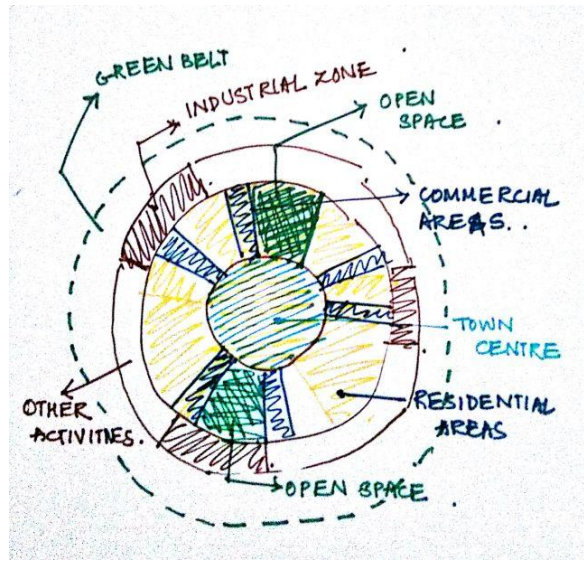 GREEN BELT
INDUSTRIAL ZONE
OPEN
SPACE
COMMERCIAL
AREAS..
TOWN
CENTRE
RESIDENTIAL
AREAS
OTHER
ACTIVITIES.
OPEN SPACE